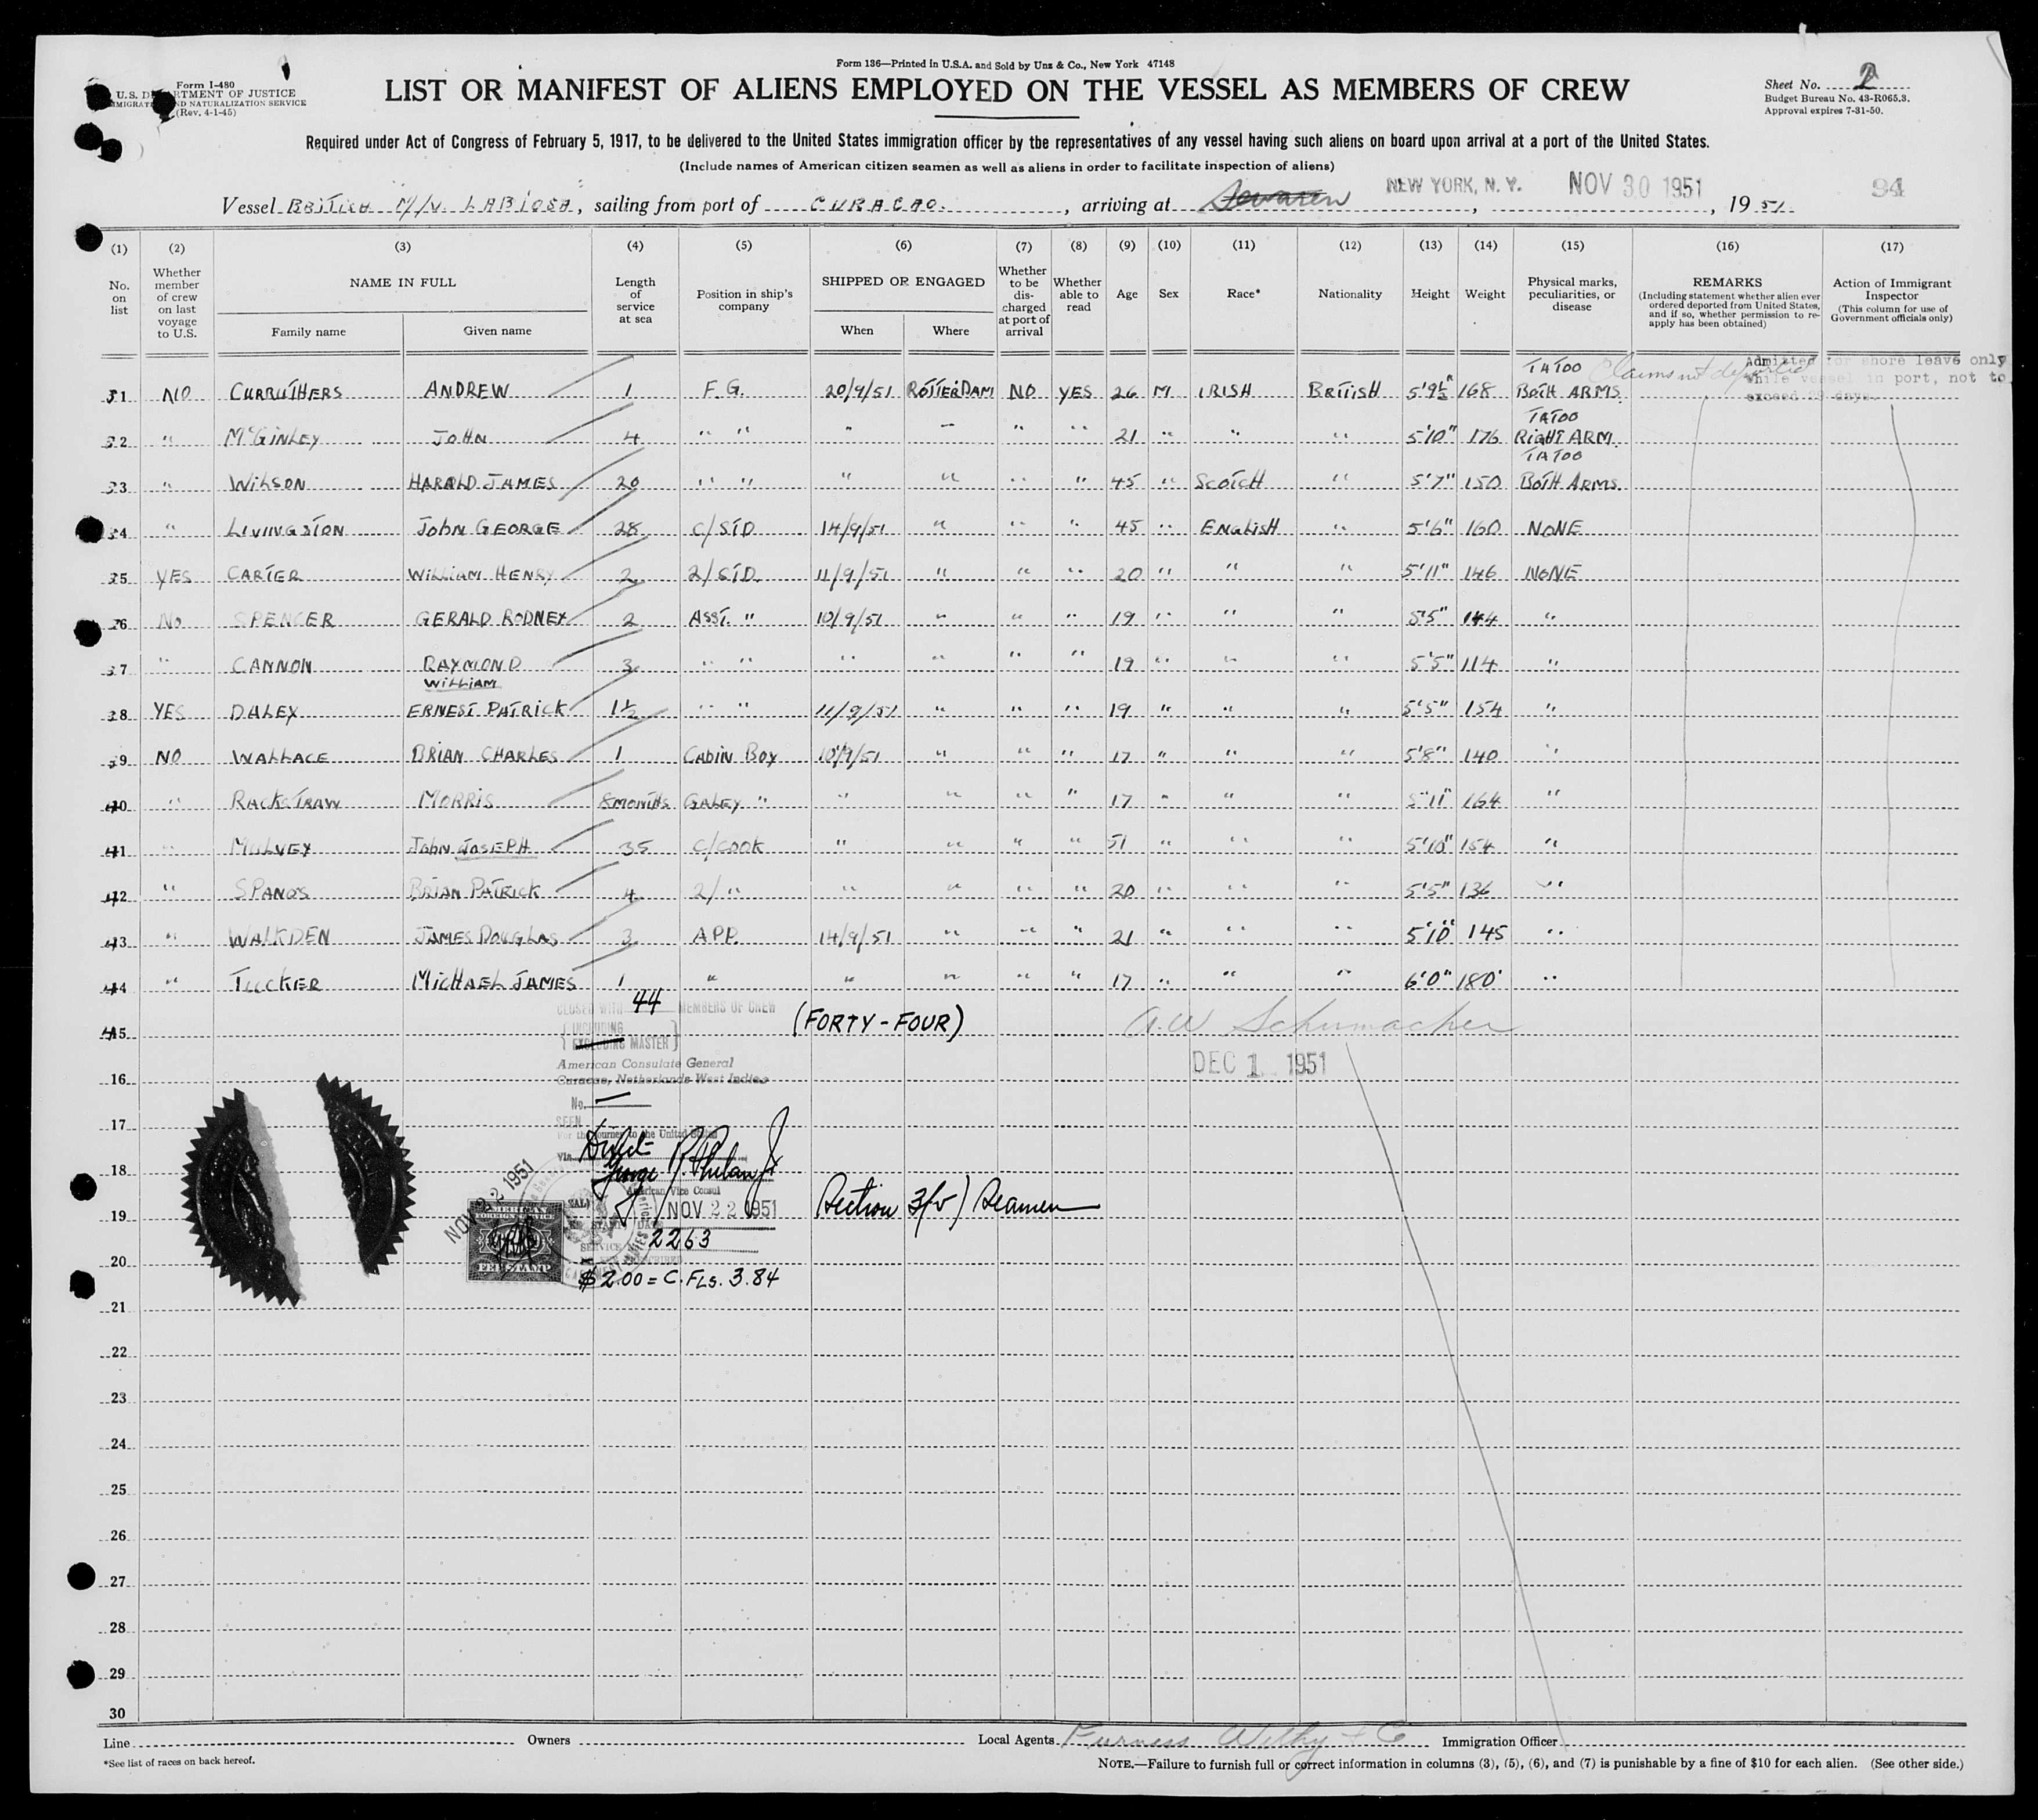 Form 136—Printed in U.S.A. and Sold by Unz & Co., New York 47148
Form I-480
U.S. DEPARTMENT OF JUSTICE
IMMIGRATION AND NATURALIZATION SERVICE
(Rev. 4-1-45)
LIST OR MANIFEST OF ALIENS EMPLOYED ON THE VESSEL AS MEMBERS OF CREW
Sheet No. 2
Budget Bureau No. 43-R065.3.
Approval expires 7-31-50.
Required under Act of Congress of February 5, 1917, to be delivered to the United States immigration officer by the representatives of any vessel having such aliens on board upon arrival at a port of the United States.
(Include names of American citizen seamen as well as aliens in order to facilitate inspection of aliens)
Vessel BRITISH M/V. LABIOSA, sailing from port of CURACAO., arriving at Sewaren NEW YORK, N. Y., NOV 30 1951, 19 51 94
(1) (2) (3) (4) (5) (6) (7) (8) (9) (10) (11) (12) (13) (14) (15) (16) (17)
No. on list
Whether member of crew on last voyage to U.S.
NAME IN FULL
Family name
Given name
Length of service at sea
Position in ship's company
SHIPPED OR ENGAGED
When
Where
Whether to be discharged at port of arrival
Whether able to read
Age
Sex
Race*
Nationality
Height
Weight
Physical marks, peculiarities, or disease
REMARKS
(Including statement whether alien ever ordered deported from United States, and if so, whether permission to reapply has been obtained)
Action of Immigrant Inspector
(This column for use of Government officials only)
Claims not deported
Admitted for shore leave only
while vessel in port, not to
exceed 29 days.
31 NO CURRUTHERS ANDREW 1 F.G. 20/9/51 ROTTERDAM NO YES 26 M IRISH BRITISH 5'9½" 168 TATOO BOTH ARMS.
32 " McGINLEY JOHN 4 " " " " " " 21 " " " 5'10" 176 TATOO RIGHT ARM.
33 " WILSON HAROLD JAMES 20 " " " " " " 45 " SCOTCH " 5'7" 150 TATOO BOTH ARMS.
34 " LIVINGSTON JOHN GEORGE 28 C/STD 14/9/51 " " " 45 " ENGLISH " 5'6" 160 NONE
35 YES CARTER WILLIAM HENRY 2 2/STD. 11/9/51 " " " 20 " " " 5'11" 146 NONE
36 NO SPENCER GERALD RODNEY 2 ASST. " 10/9/51 " " " 19 " " " 5'5" 144 "
37 " CANNON RAYMOND WILLIAM 3 " " " " " " 19 " " " 5'5" 114 "
38 YES DALEY ERNEST PATRICK 1½ " " 11/9/51 " " " 19 " " " 5'5" 154 "
39 NO WALLACE BRIAN CHARLES 1 CABIN BOY 10/9/51 " " " 17 " " " 5'8" 140 "
40 " RACKSTRAW MORRIS 8 MONTHS GALEY " " " " " 17 " " " 5'11" 164 "
41 " MULVEY JOHN JOSEPH 35 C/COOK " " " " 51 " " " 5'10" 154 "
42 " SPANOS BRIAN PATRICK 4 2/ " " " " " 20 " " " 5'5" 136 "
43 " WALKDEN JAMES DOUGLAS 3 APP. 14/9/51 " " " 21 " " " 5'10" 145 "
44 " TUCKER MICHAEL JAMES 1 " " " " " 17 " " " 6'0" 180 "
CLOSED WITH 44 MEMBERS OF CREW
(FORTY-FOUR)
INCLUDING
EXCLUDING MASTER
A.W Schumacher
DEC 1 1951
American Consulate General
Curacao, Netherlands West Indies
No. —
SEEN
For the journey to the United States
Via Direct
American Vice Consul
NOV 22 1951
NOV 22 1951
Section 3(5) Seamen
AMERICAN
FOREIGN SERVICE
FEE STAMP
SERVICE 2263
$2.00 = C. FLS. 3.84
45
16
17
18
19
20
21
22
23
24
25
26
27
28
29
30
Line Owners Local Agents Furness Withy & Co Immigration Officer
*See list of races on back hereof.
NOTE.—Failure to furnish full or correct information in columns (3), (5), (6), and (7) is punishable by a fine of $10 for each alien. (See other side.)